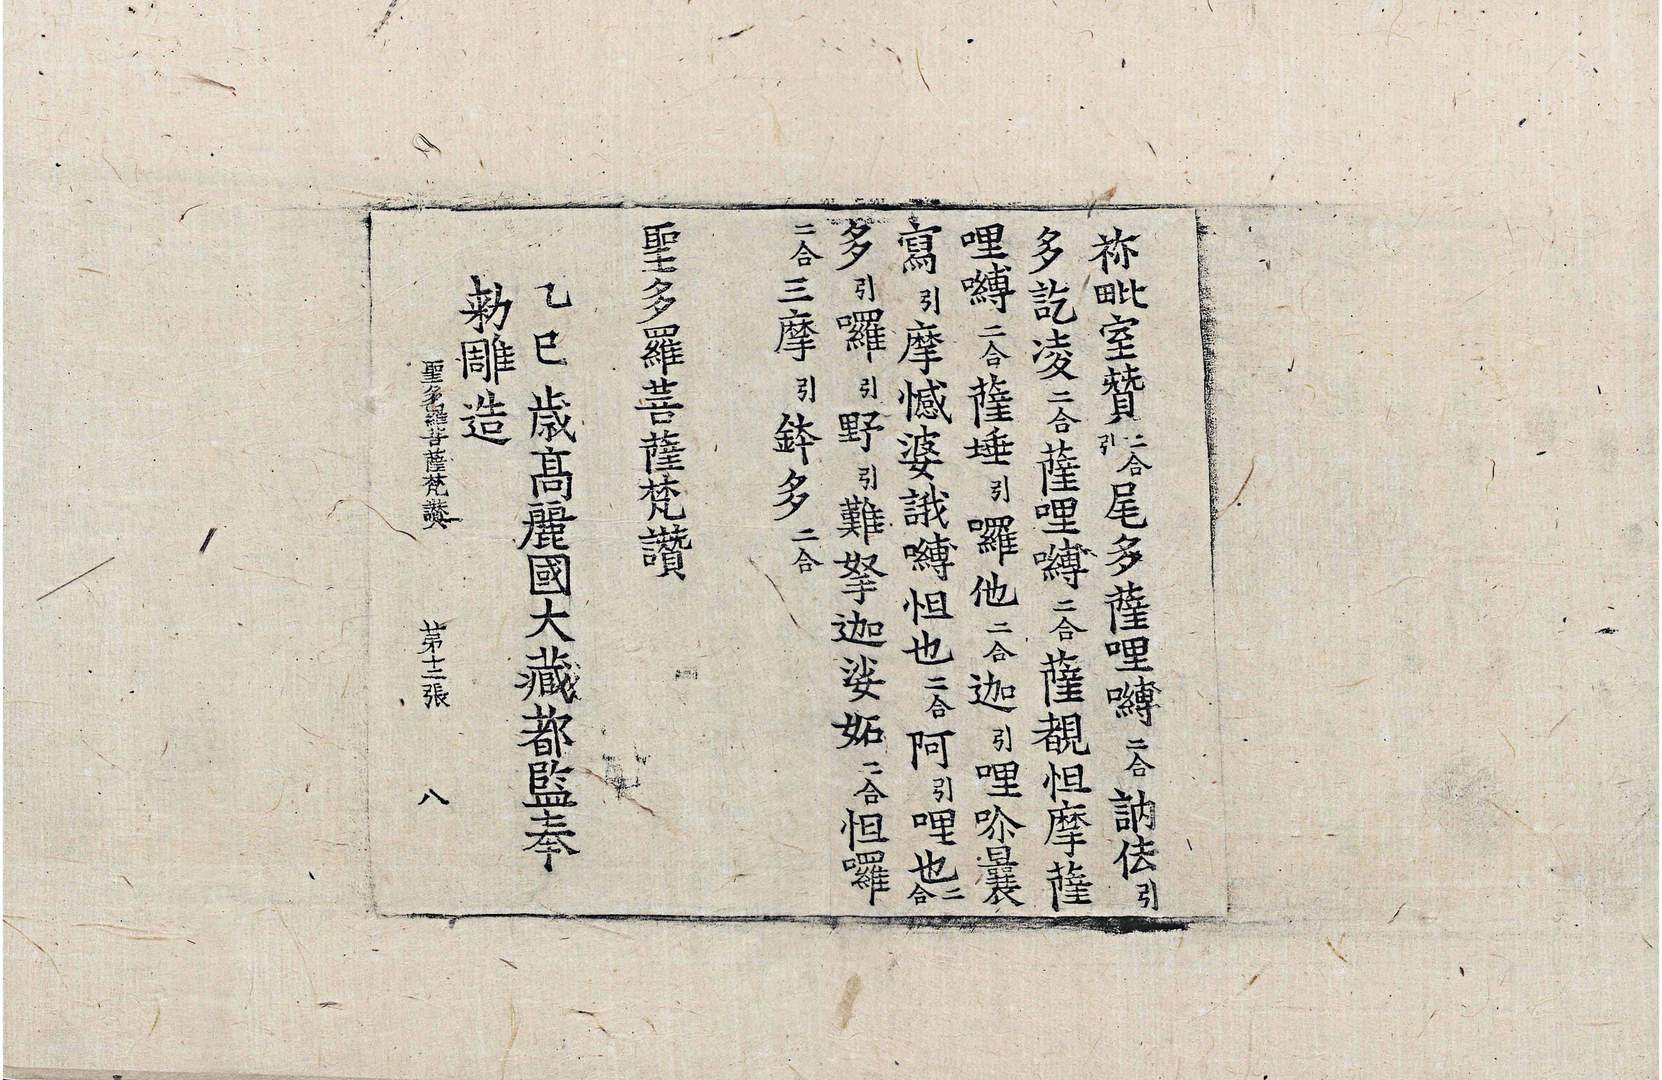 祢毗室贊二合引尾多薩哩嚩二合訥佉引
多訖凌二合薩哩嚩二合薩覩怛摩薩
哩嚩二合薩埵引囉他二合迦引哩尒曩
寫引摩憾婆誐嚩怛也二合阿引哩也二合
多引囉引野引難拏迦娑妬二合怛囉
二合三摩引鉢多二合
聖多羅菩薩梵讚
乙巳歳高麗國大藏都監奉
勅雕造
聖多羅菩薩梵讚 苐十二張 八